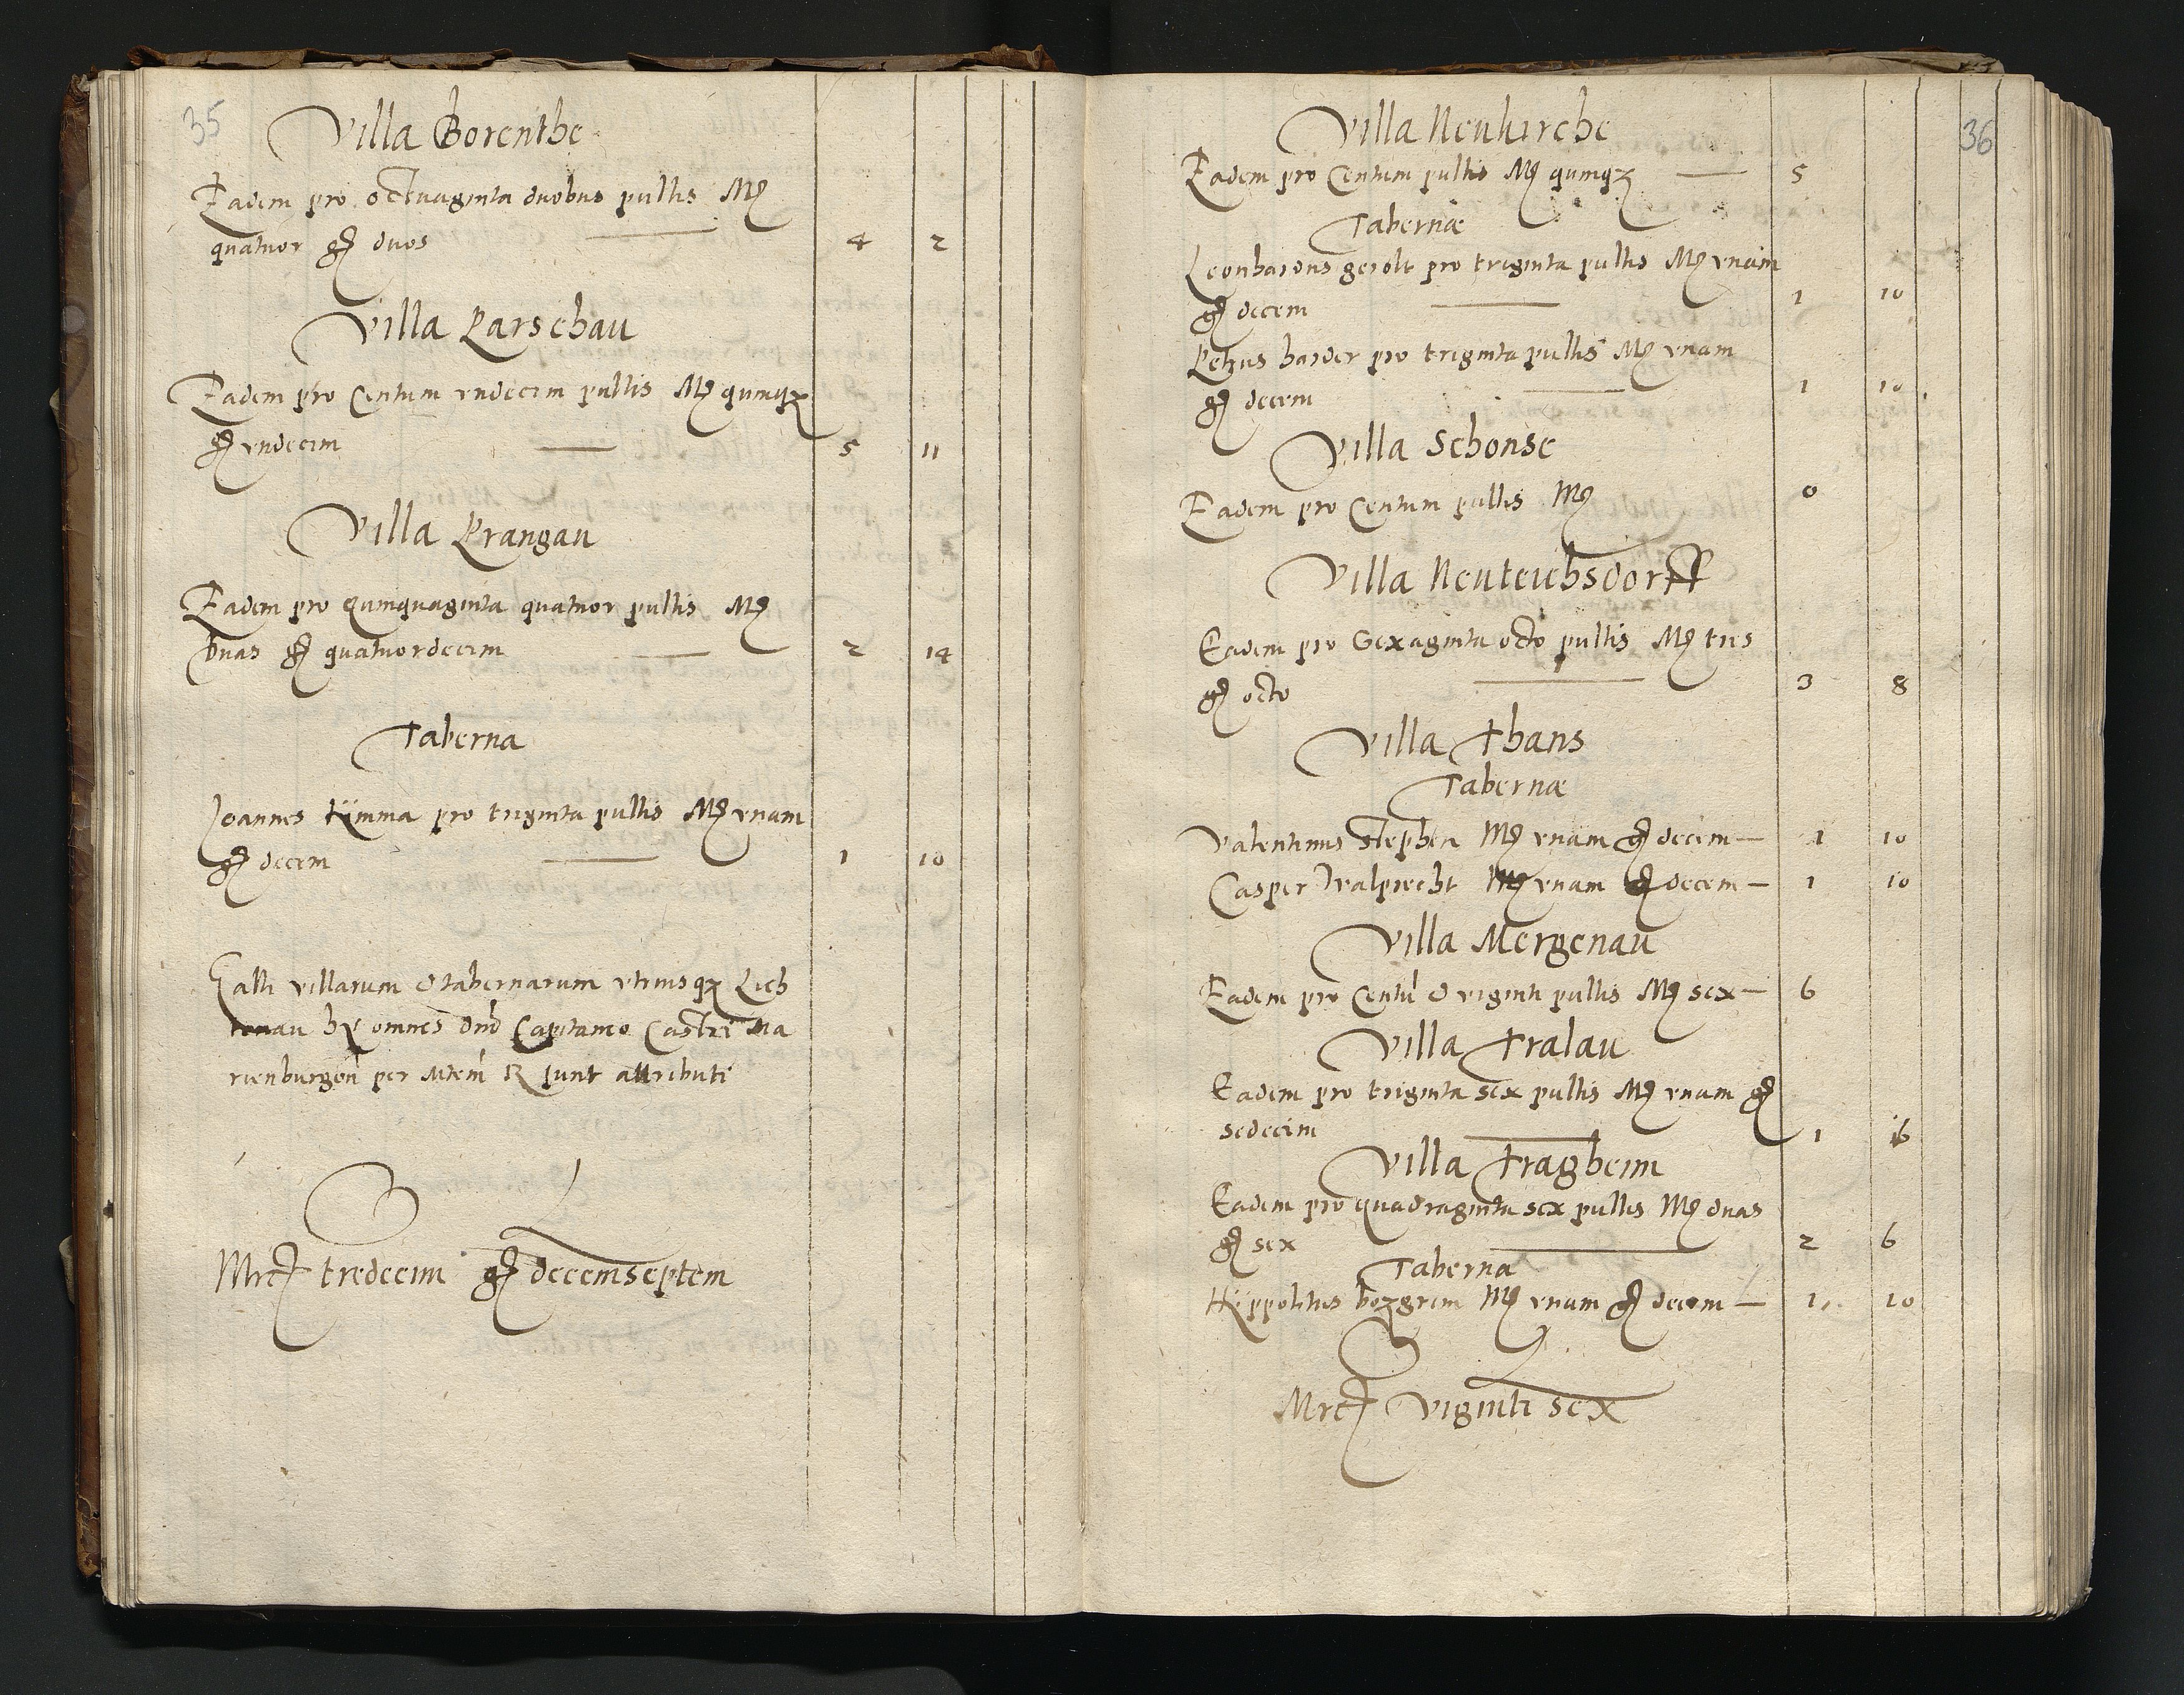 35
Villa Borenthe
Eadem pro octuaginta duobus pullis Mꝫ
quatuor gꝫ duos — 4 2
Villa Parschau
Eadem pro Centum vndecim pullis Mꝫ quinqꝫ
gꝫ vndecim — 5 11
Villa Prangau
Eadem pro quinquaginta quatuor pullis Mꝫ
duas gꝫ quatuordecim — 2 14
Taberna
Joannes Kimma pro triginta pullis Mꝫ vnam
gꝫ decem — 1 10
Galli villarum & tabernarum vtriusqꝫ Lich
tenau hi omnes dno Capitaneo Castri Ma
rienburgen per Mtem R sunt attributi
Mrcꝫ tredecim gꝫ decemseptem
36
Villa Neukirche
Eadem pro Centum pullis Mꝫ quinqꝫ — 5
Tabernæ
Leonhardus gerolt pro triginta pullis Mꝫ vnam
gꝫ decem — 1 10
Petrus harder pro triginta pullis Mꝫ vnam
gꝫ decem — 1 10
Villa Schonse
Eadem pro Centum pullis Mꝫ 0
Villa Neuteichsdorff
Eadem pro Sexaginta octo pullis Mꝫ tres
gꝫ octo — 3 8
Villa Thans
Tabernæ
Valentinus Stephen Mꝫ vnam gꝫ decem — 1 10
Casper Walprecht Mꝫ vnam gꝫ decem — 1 10
Villa Mergenau
Eadem pro Centu & viginti pullis Mꝫ sex — 6
Villa Tralau
Eadem pro triginta sex pullis Mꝫ vnam gꝫ
sedecim — 1 16
Villa Tragheim
Eadem pro quadraginta sex pullis Mꝫ duas
gꝫ sex — 2 6
Taberna
Hippolitus bozgrem Mꝫ vnam gꝫ decem — 1 10
Mrcꝫ viginti sex